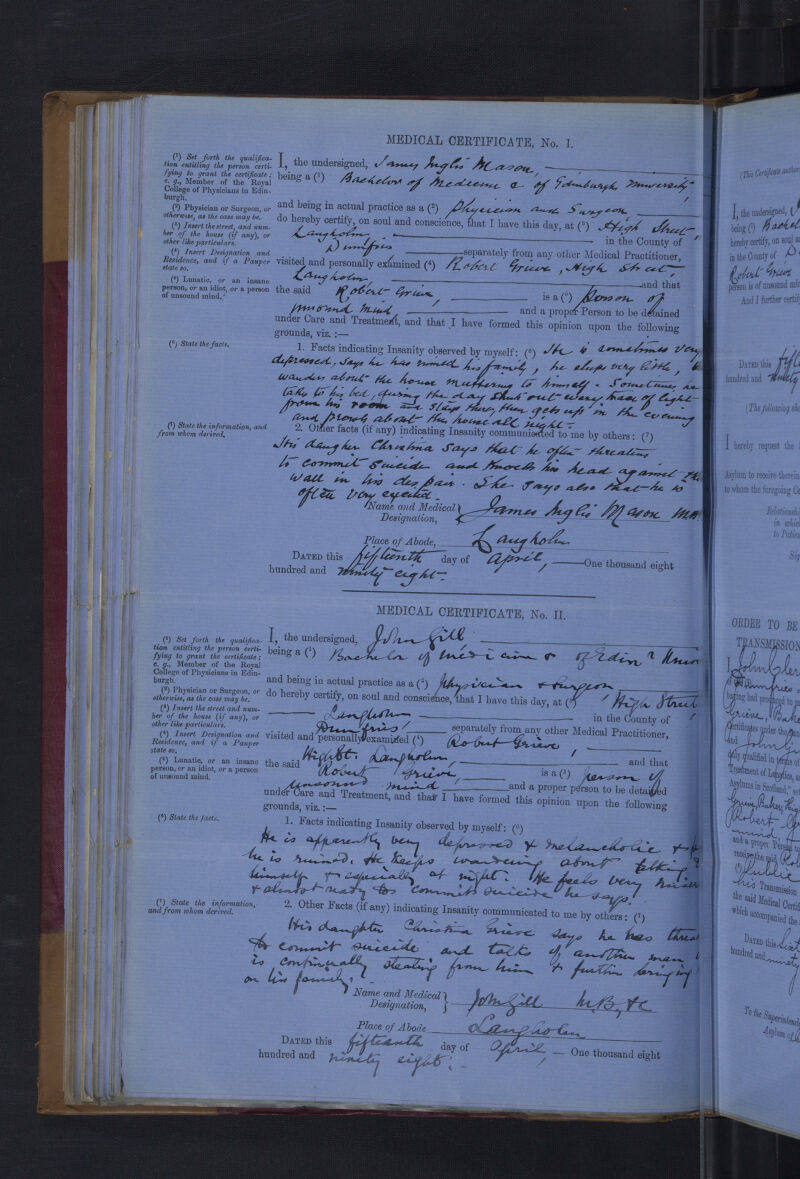 MEDICAL CERTIFICATE, No. I.
(¹) Set forth the qualifica-
tion entitling the person certi-
fying to grant the certificate;
e. g., Member of the Royal
College of Physicians in Edin-
burgh.
(²) Physician or Surgeon, or
otherwise, as the case may be.
(³) Insert the street, and num-
ber of the house (if any), or
other like particulars.
(⁴) Insert Designation and
Residence, and if a Pauper
state so.
(⁵) Lunatic, or an insane
person, or an idiot, or a person
of unsound mind.
(⁶) State the facts.
(⁷) State the information, and
from whom derived.
I, the undersigned, James Inglis Mason,
being a (¹) Bachelor of Medicine &c of Edinburgh University
and being in actual practice as a (²) Physician and Surgeon,
do hereby certify, on soul and conscience, that I have this day, at (³) High Street,
Langholm, in the County of
Dumfries separately from any other Medical Practitioner,
visited and personally examined (⁴) Robert Grieve, High Street,
Langholm and that
the said Robert Grieve, is a (⁵) person of
unsound mind and a proper Person to be detained
under Care and Treatment, and that I have formed this opinion upon the following
grounds, viz.:—
1. Facts indicating Insanity observed by myself: (⁶) He is sometimes very
depressed, says he has ruined his family, he sleeps very little,
wanders about the house muttering to himself. Sometimes he
takes to his bed, during the day shuts out every trace of light
from his room and stays there, then gets up in the evening
and prowls about the house all night.
2. Other facts (if any) indicating Insanity communicated to me by others: (⁷)
His daugher Christina says that he often threatens
to commit suicide and knocks his head against the
wall in his despair. She says also that he is
often very excited.
Name and Medical Designation, James Inglis Mason
Place of Abode, Langholm
DATED this fifteenth day of April, One thousand eight
hundred and ninety eight.
MEDICAL CERTIFICATE, No. II.
(¹) Set forth the qualifica-
tion entitling the person certi-
fying to grant the certificate;
e. g., Member of the Royal
College of Physicians in Edin-
burgh.
(²) Physician or Surgeon, or
otherwise, as the case may be.
(³) Insert the street and num-
ber of the house (if any), or
other like particulars.
(⁴) Insert Designation and
Residence, and if a Pauper
state so.
(⁵) Lunatic, or an insane
person, or an idiot, or a person
of unsound mind.
(⁶) State the facts.
(⁷) State the information,
and from whom derived.
I, the undersigned, John Gill
being a (¹) Bachelor of medicine & of Edinr
and being in actual practice as a (²) physician & surgeon,
do hereby certify, on soul and conscience, that I have this day, at (³) High Street
Langholm in the County of
Dumfries separately from any other Medical Practitioner,
visited and personally examined (⁴) Robert Grieve,
High St. Langholm, and that
the said Robert Grieve, is a (⁵) person of
unsound mind and a proper person to be detained
under Care and Treatment, and that I have formed this opinion upon the following
grounds, viz.:—
1. Facts indicating Insanity observed by myself: (⁶)
He is apparently very depressed & melancholic &
he is ruined. He keeps wandering about talking
himself & especially at night. He feels very
& almost ready to commit suicide he says.
2. Other Facts (if any) indicating Insanity communicated to me by others: (⁷)
His daughter Christina Grieve says he has
to commit suicide and talks of another man
is continually stealing from him & further bringing
on his family.
Name and Medical Designation, John Gill M.B, &c
Place of Abode Langholm
DATED this fifteenth day of April, One thousand eight
hundred and ninety eight.
I, the undersigned,
being (¹)
hereby certify, on soul
in the County of
Robert Grieve
person is of unsound
And I further certify
DATED this
hundred and ninety
(The following
I hereby request the
Asylum to receive therein
to whom the foregoing
in which
to Patient
ORDER TO BE
TRANSMISSION
I John
Dumfries
having had produced to
Grieve, Baker
Certificates under the
and John
duly qualified in terms of
Treatment of Lunatics,
Asylums in Scotland,
Grieve, Baker
Robert
mind,
and a proper Person
receive the said
his Transmission
the said Medical
which accompanied the
DATED this
hundred and ninety
To the Superintendent
Asylum of